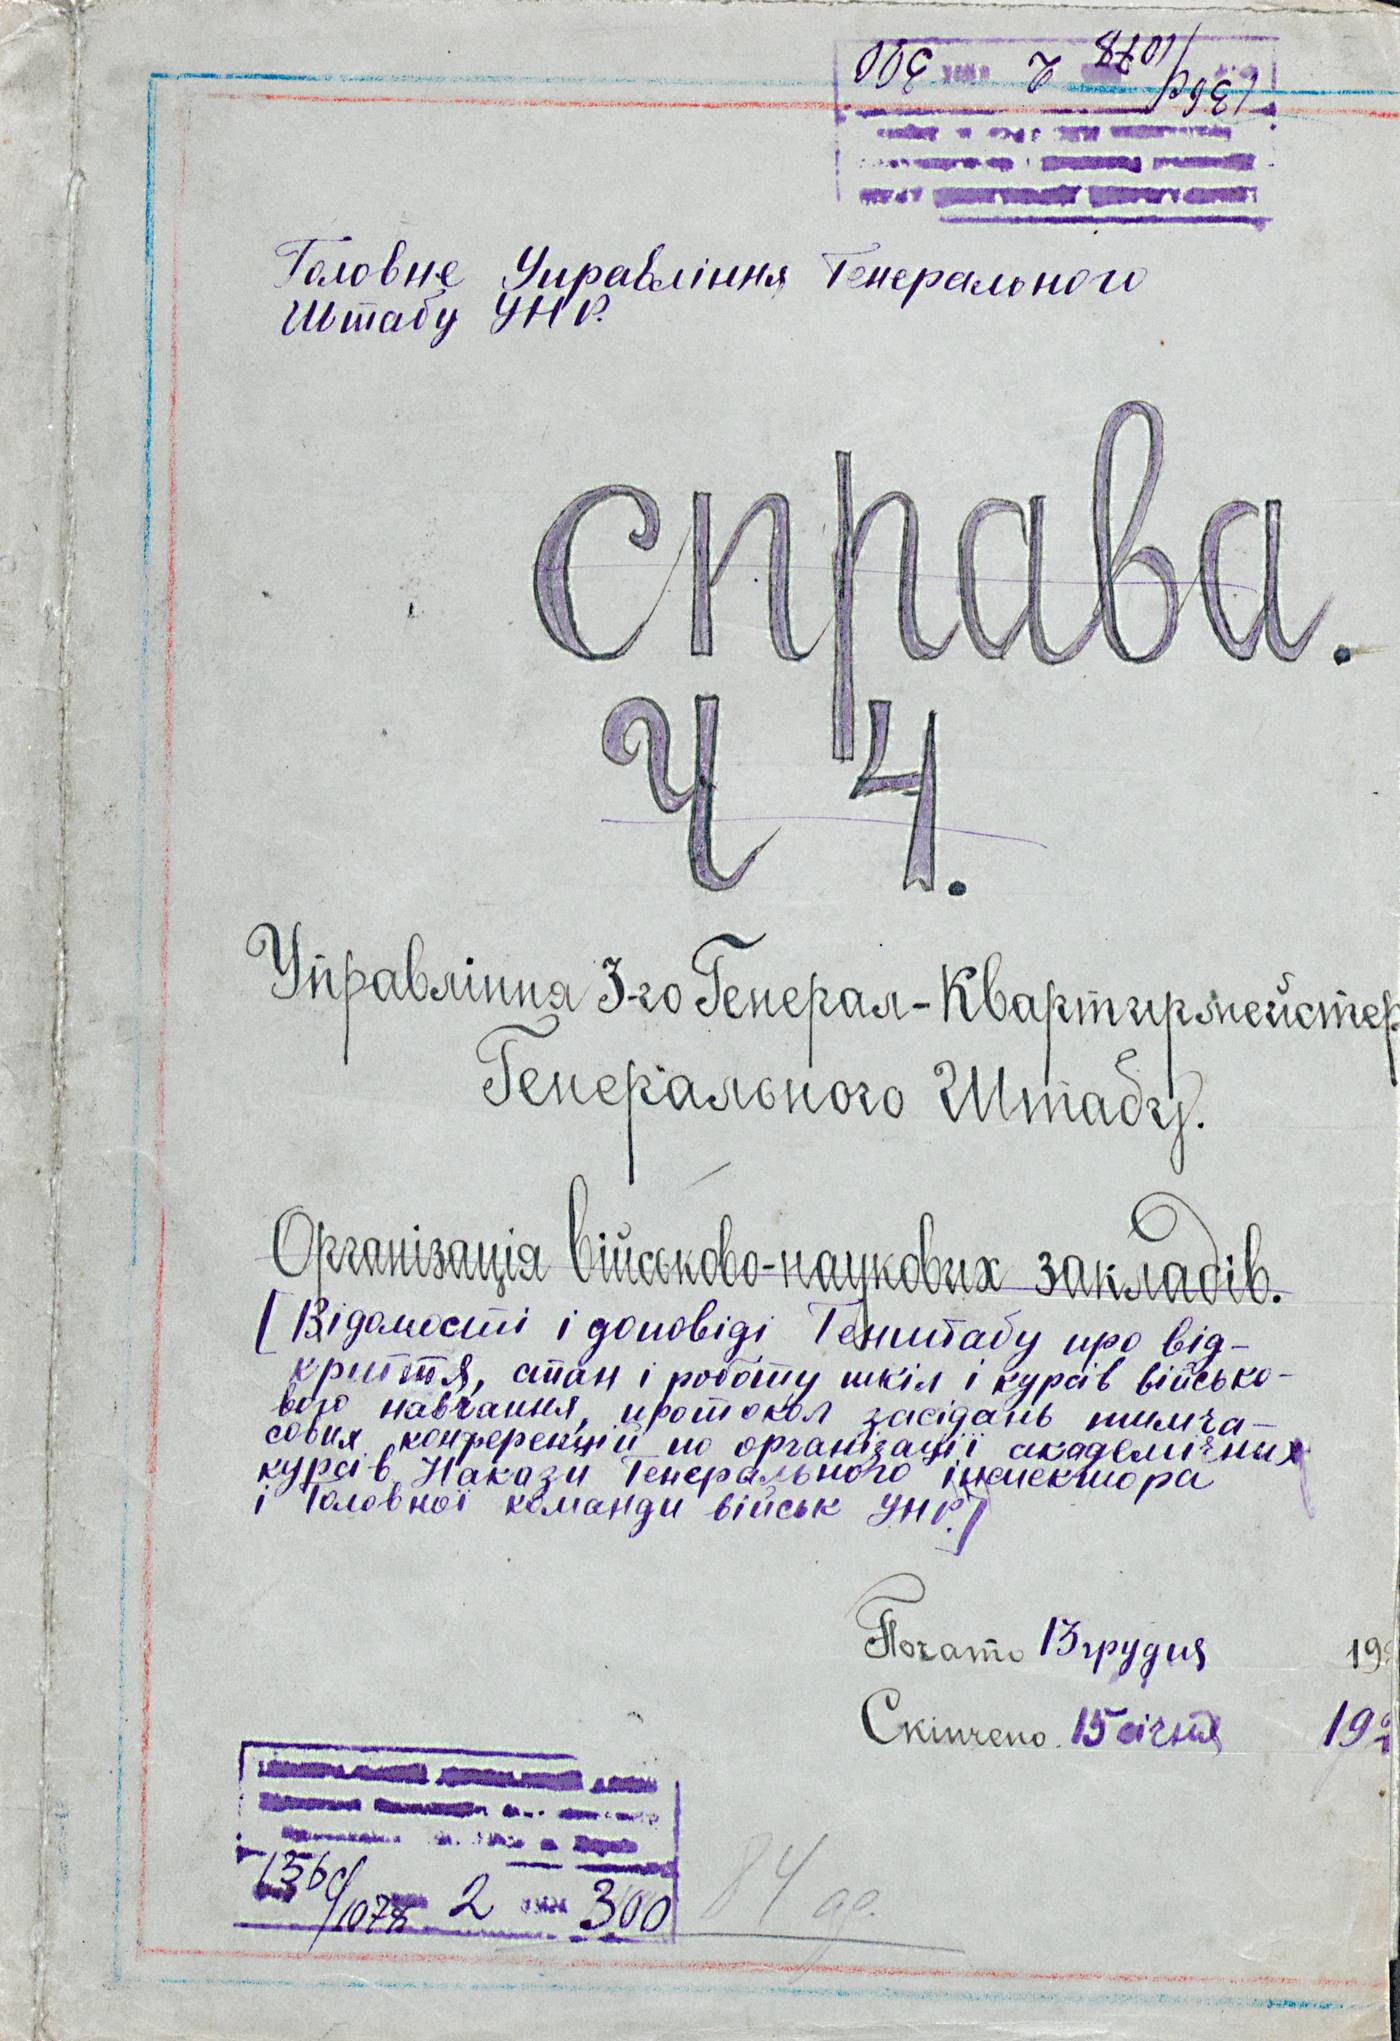 136с/1078 2 300
Головне Управління Генерального
Штабу УНР.
Справа.
Ч 4.
Управління 3-го Генерал-Квартирмейстер
Генерального Штабу.
Організація військово-наукових закладів.
[Відомості і доповіді Генштабу про від-
криття, стан і роботу шкіл і курсів військо-
вого навчання, протокол засідань тимча-
сових конференцій по організації академічних
курсів. Накази Генерального інспектора
і Головної команди військ УНР.]
Почато 13 грудня 19
Скінчено 15 січня 19
136с/1078 2 300
84 ар.